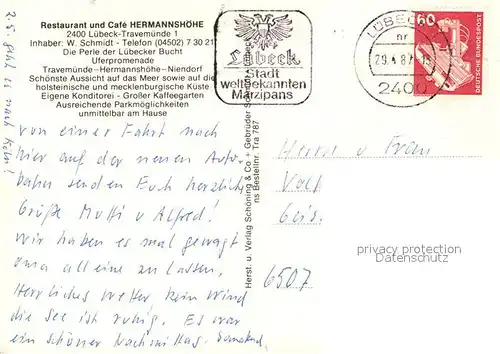 Restaurant und Café HERMANNSHÖHE
2400 Lübeck-Travemünde 1
Inhaber: W. Schmidt - Telefon (04502) 7 30 21
Die Perle der Lübecker Bucht
Uferpromenade
Travemünde–Hermannshöhe–Niendorf
Schönste Aussicht auf das Meer sowie auf die
holsteinische und mecklenburgische Küste
Eigene Konditorei - Großer Kaffeegarten
Ausreichende Parkmöglichkeiten
unmittelbar am Hause
2.5. geht es nach Köln!
Lübeck
Stadt
weltbekannten
Marzipans
LÜBECK
29.4.87
2400
60
DEUTSCHE BUNDESPOST
von einer Fahrt nach
hier auf der neuen Auto-
bahn senden Euch herzliche
Grüße Mutti u Alfred!
Wir haben es mal gewagt
Oma alleine zu lassen.
Herrliches Wetter kein Wind
die See ist ruhig. Es war
ein schöner Nachmittag.
Herrn u Frau
6507
Herst. u. Verlag Schöning & Co + Gebrüder
ns Bestellnr. Tra 787
privacy protection
Datenschutz